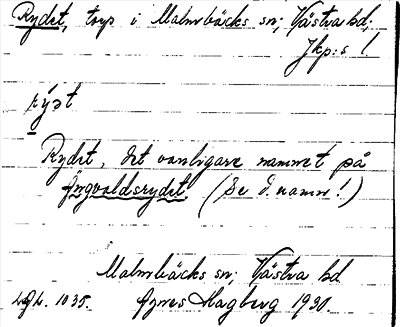 Rydet, torp i Malmbäcks sn, Västra hd,
Jkp:s l.
rýət
Rydet, det vanligare namnet på
Ingvaldsrydet (Se d. namn!)
Malmbäcks sn, Västra hd
1035. Agnes Hagberg 1930